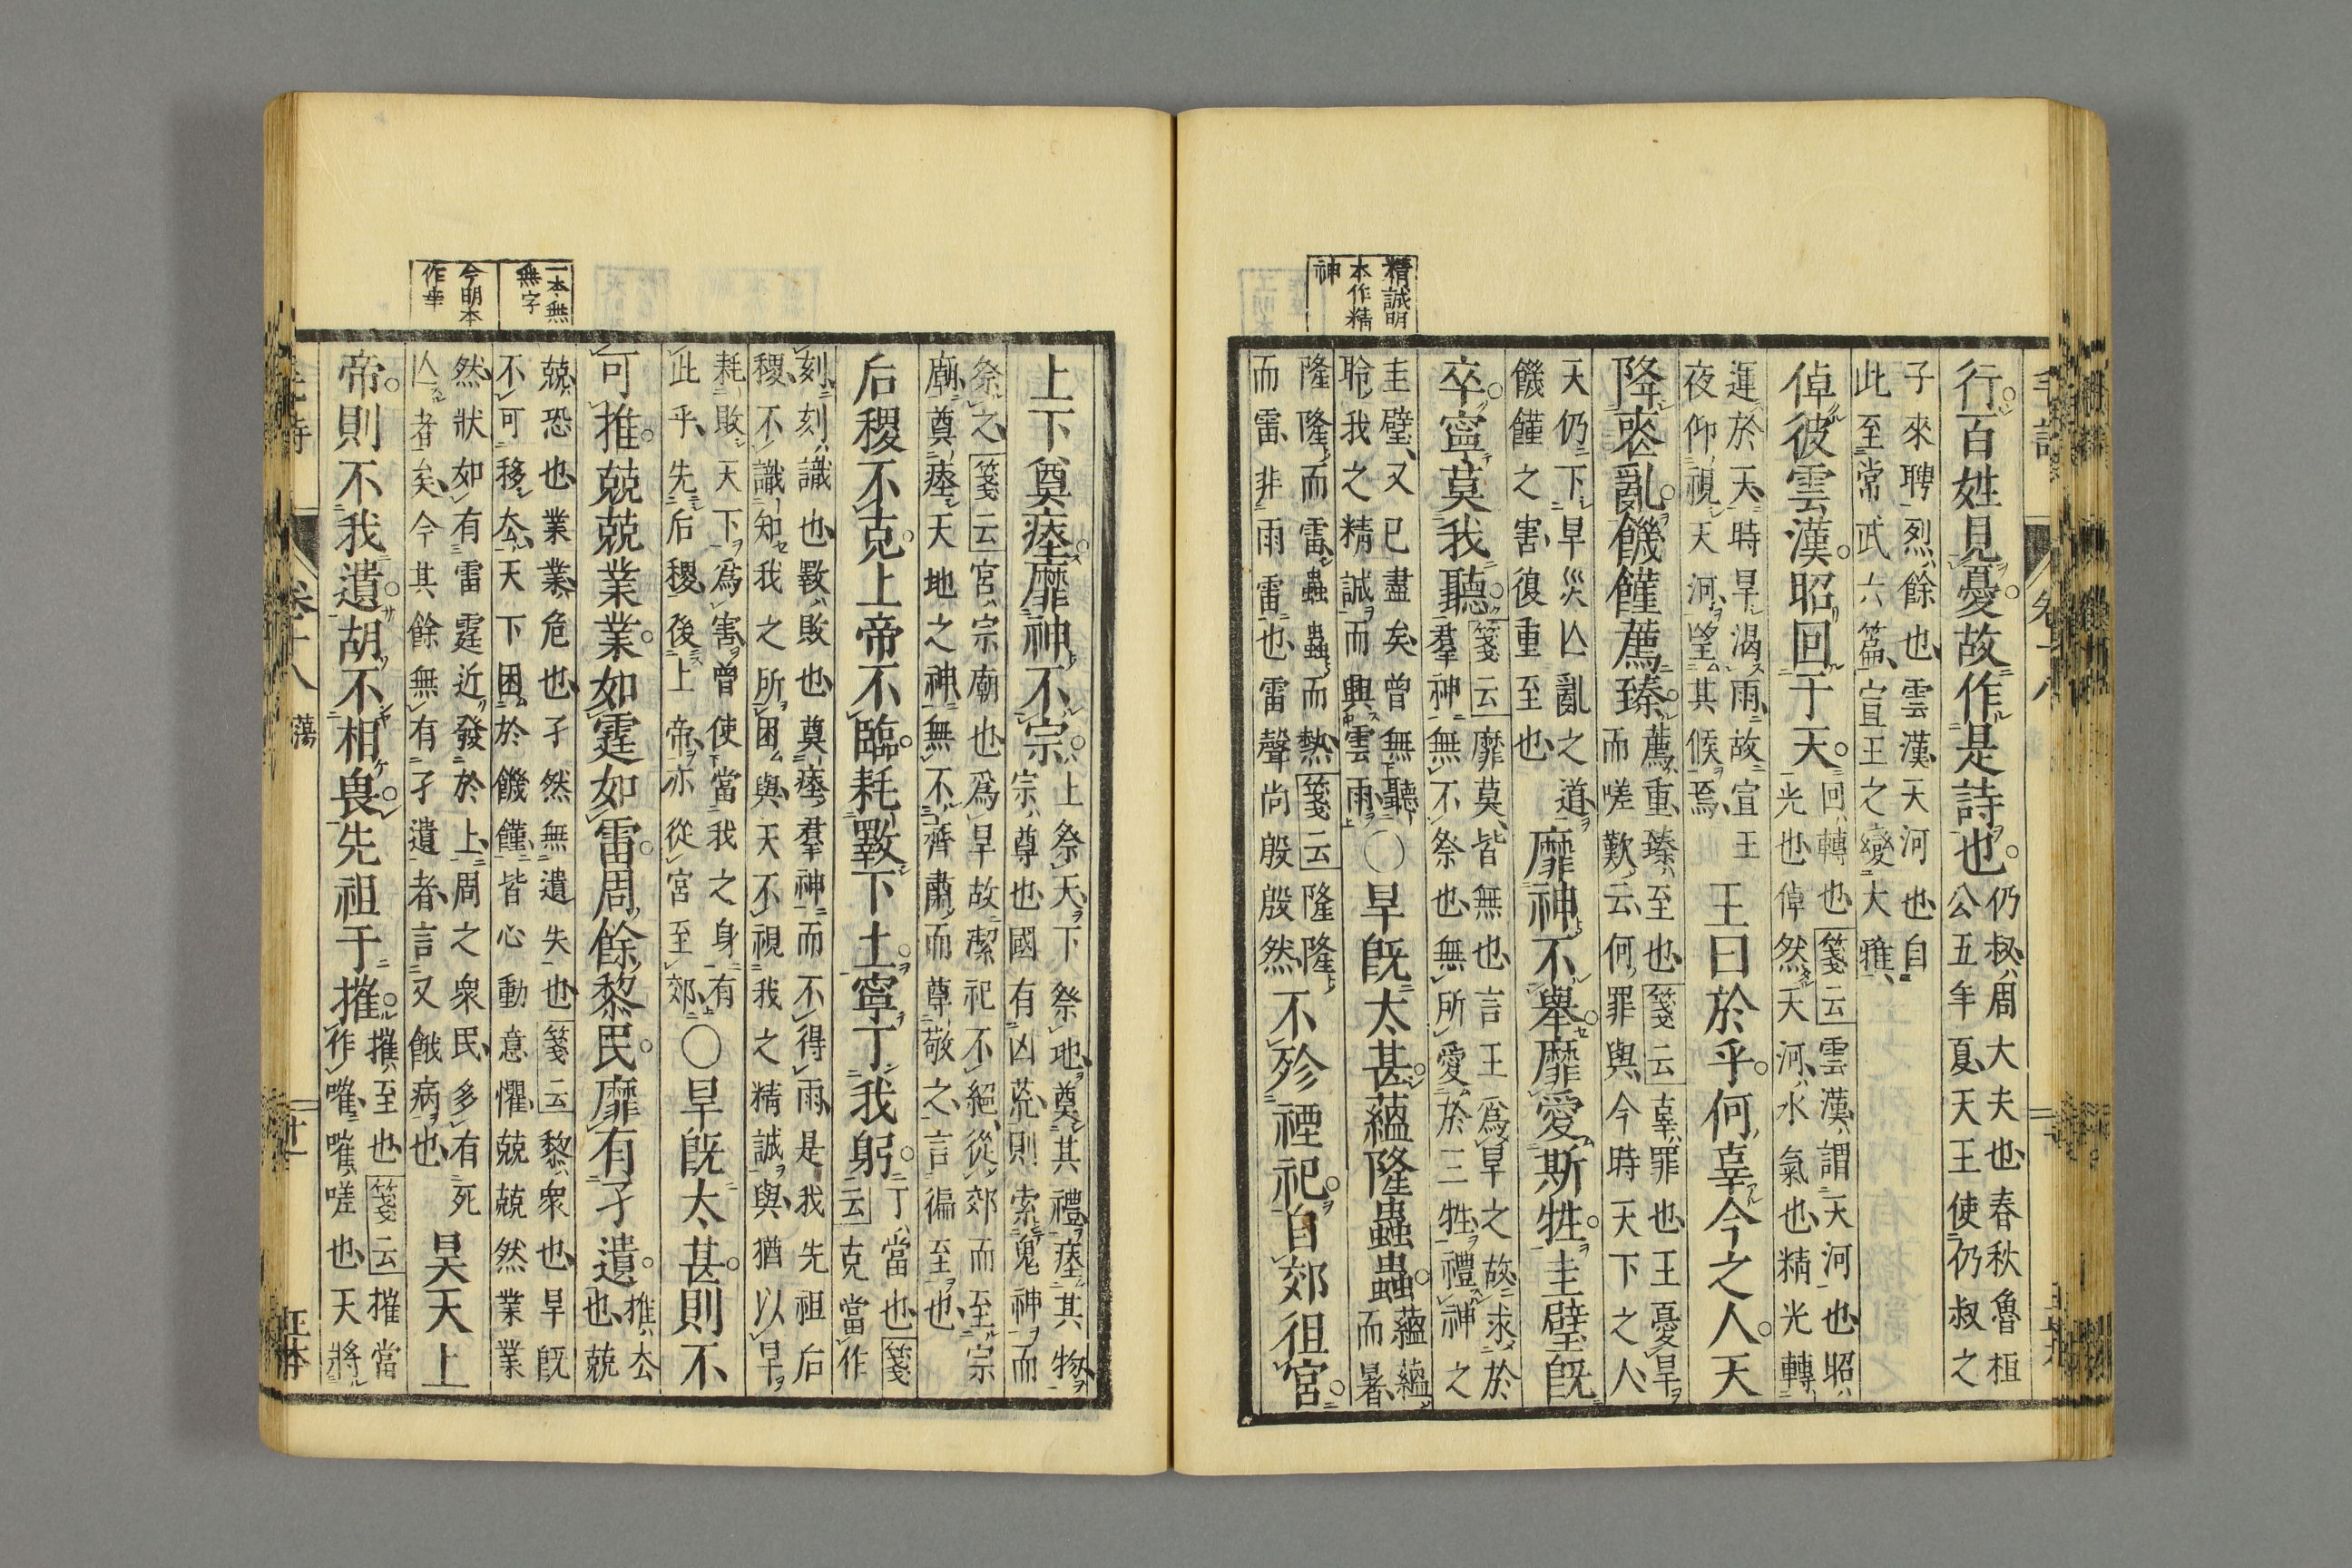 精誠明
本作精
神
毛詩
卷十八
行百姓見憂故作是詩也
仍叔周大夫也春秋魯桓
公五年夏天王使仍叔之
子來聘烈餘也雲漢天河也自
此至常武六篇宣王之變大雅
倬彼雲漢昭回于天
回轉也箋云雲漢謂天河也昭
光也倬然天河水氣也精光轉
運於天天時旱渴雨故宣王
夜仰視天河望其候焉
王曰於乎何辜今之人天
降喪亂饑饉薦臻
薦重臻至也箋云辜罪也王憂旱
而嗟歎云何罪與今時天下之人
天仍下旱災亾亂之道
饑饉之害復重至也
靡神不舉靡愛斯牲圭璧旣
卒寧莫我聽
箋云靡莫皆無也言王爲旱之故求於
羣神無不祭也無所愛於三牲禮神之
圭璧又已盡矣曾無聽
聆我之精誠而興雲雨
○旱旣太甚蘊隆蟲蟲
蘊蘊
而暑
隆隆而雷蟲蟲而熱箋云隆隆
而雷非雨雷也雷聲尚殷殷然
不殄禋祀自郊徂宮
一本無
無字
今明本
作幸
上下奠瘞靡神不宗
上祭天下祭地奠其禮瘞其物
宗尊也國有凶荒則索鬼神而
祭之箋云宮宗廟也爲旱故潔祀不絕從郊而至宗
廟奠瘞天地之神無不齊肅而尊敬之言徧至也
后稷不克上帝不臨耗斁下土寧丁我躬
丁當也箋
云克當作
刻刻識也斁敗也奠瘞羣神而不得雨是我先祖后
稷不識知我之所困與天不視我之精誠與猶以旱
耗敗天下爲害曾使當我之身有
此乎先后稷後上帝亦從宮至郊
○旱旣太甚則不
可推兢兢業業如霆如雷周餘黎民靡有孑遺
推去
也兢
兢恐也業業危也孑然無遺失也箋云黎衆也旱旣
不可移去天下困於饑饉皆心動意懼兢兢然業業
然狀如有雷霆近發於上周之衆民多有死
亾者矣今其餘無有孑遺者言又餓病也
昊天上
帝則不我遺胡不相畏先祖于摧
摧至也箋云摧當
作嗺嗺嗟也天將
卷十八
蕩